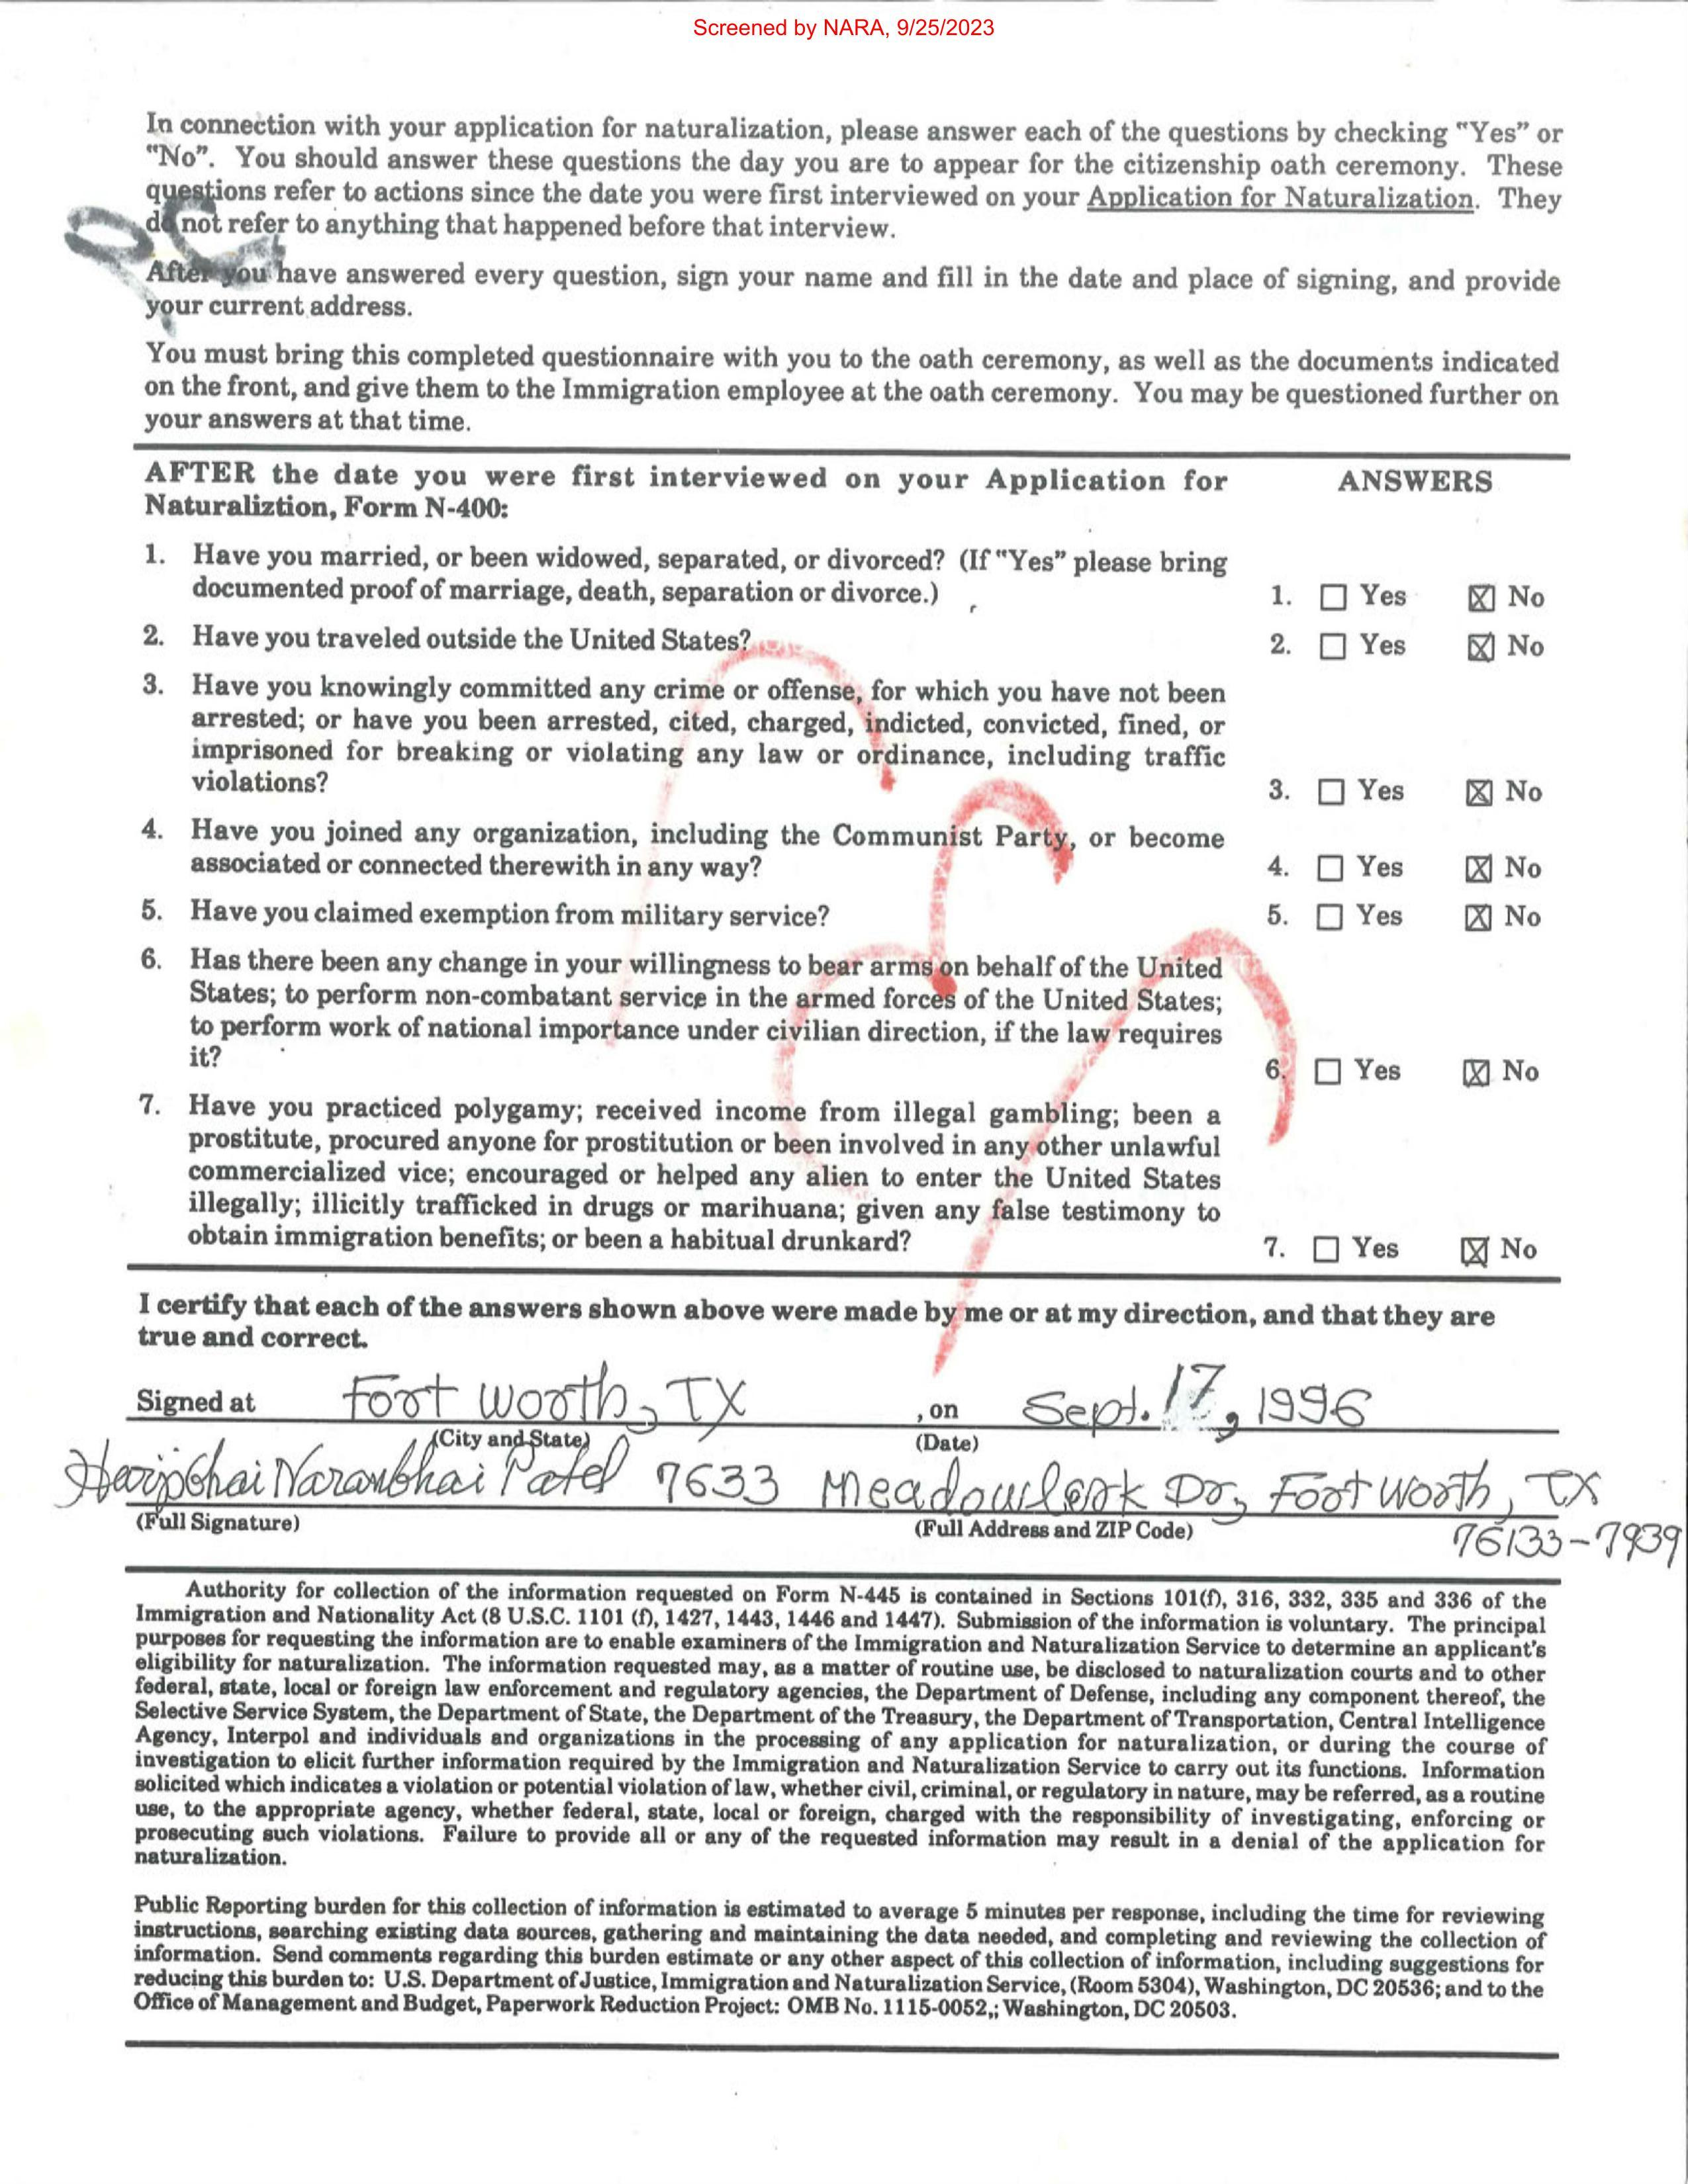 Screened by NARA, 9/25/2023
In connection with your application for naturalization, please answer each of the questions by checking "Yes" or
"No". You should answer these questions the day you are to appear for the citizenship oath ceremony. These
questions refer to actions since the date you were first interviewed on your Application for Naturalization. They
do not refer to anything that happened before that interview.
After you have answered every question, sign your name and fill in the date and place of signing, and provide
your current address.
You must bring this completed questionnaire with you to the oath ceremony, as well as the documents indicated
on the front, and give them to the Immigration employee at the oath ceremony. You may be questioned further on
your answers at that time.
AFTER the date you were first interviewed on your Application for ANSWERS
Naturaliztion, Form N-400:
1. Have you married, or been widowed, separated, or divorced? (If "Yes" please bring
documented proof of marriage, death, separation or divorce.) 1. ☐ Yes ☒ No
2. Have you traveled outside the United States? 2. ☐ Yes ☒ No
3. Have you knowingly committed any crime or offense, for which you have not been
arrested; or have you been arrested, cited, charged, indicted, convicted, fined, or
imprisoned for breaking or violating any law or ordinance, including traffic
violations? 3. ☐ Yes ☒ No
4. Have you joined any organization, including the Communist Party, or become
associated or connected therewith in any way? 4. ☐ Yes ☒ No
5. Have you claimed exemption from military service? 5. ☐ Yes ☒ No
6. Has there been any change in your willingness to bear arms on behalf of the United
States; to perform non-combatant service in the armed forces of the United States;
to perform work of national importance under civilian direction, if the law requires
it? 6. ☐ Yes ☒ No
7. Have you practiced polygamy; received income from illegal gambling; been a
prostitute, procured anyone for prostitution or been involved in any other unlawful
commercialized vice; encouraged or helped any alien to enter the United States
illegally; illicitly trafficked in drugs or marihuana; given any false testimony to
obtain immigration benefits; or been a habitual drunkard? 7. ☐ Yes ☒ No
I certify that each of the answers shown above were made by me or at my direction, and that they are
true and correct.
Signed at Fort Worth, TX , on Sept. 17, 1996
(City and State) (Date)
Naranbhai Patel 7633 Meadowlark Dr, Fort Worth, TX
(Full Signature) (Full Address and ZIP Code) 76133-7939
Authority for collection of the information requested on Form N-445 is contained in Sections 101(f), 316, 332, 335 and 336 of the
Immigration and Nationality Act (8 U.S.C. 1101 (f), 1427, 1443, 1446 and 1447). Submission of the information is voluntary. The principal
purposes for requesting the information are to enable examiners of the Immigration and Naturalization Service to determine an applicant's
eligibility for naturalization. The information requested may, as a matter of routine use, be disclosed to naturalization courts and to other
federal, state, local or foreign law enforcement and regulatory agencies, the Department of Defense, including any component thereof, the
Selective Service System, the Department of State, the Department of the Treasury, the Department of Transportation, Central Intelligence
Agency, Interpol and individuals and organizations in the processing of any application for naturalization, or during the course of
investigation to elicit further information required by the Immigration and Naturalization Service to carry out its functions. Information
solicited which indicates a violation or potential violation of law, whether civil, criminal, or regulatory in nature, may be referred, as a routine
use, to the appropriate agency, whether federal, state, local or foreign, charged with the responsibility of investigating, enforcing or
prosecuting such violations. Failure to provide all or any of the requested information may result in a denial of the application for
naturalization.
Public Reporting burden for this collection of information is estimated to average 5 minutes per response, including the time for reviewing
instructions, searching existing data sources, gathering and maintaining the data needed, and completing and reviewing the collection of
information. Send comments regarding this burden estimate or any other aspect of this collection of information, including suggestions for
reducing this burden to: U.S. Department of Justice, Immigration and Naturalization Service, (Room 5304), Washington, DC 20536; and to the
Office of Management and Budget, Paperwork Reduction Project: OMB No. 1115-0052,; Washington, DC 20503.